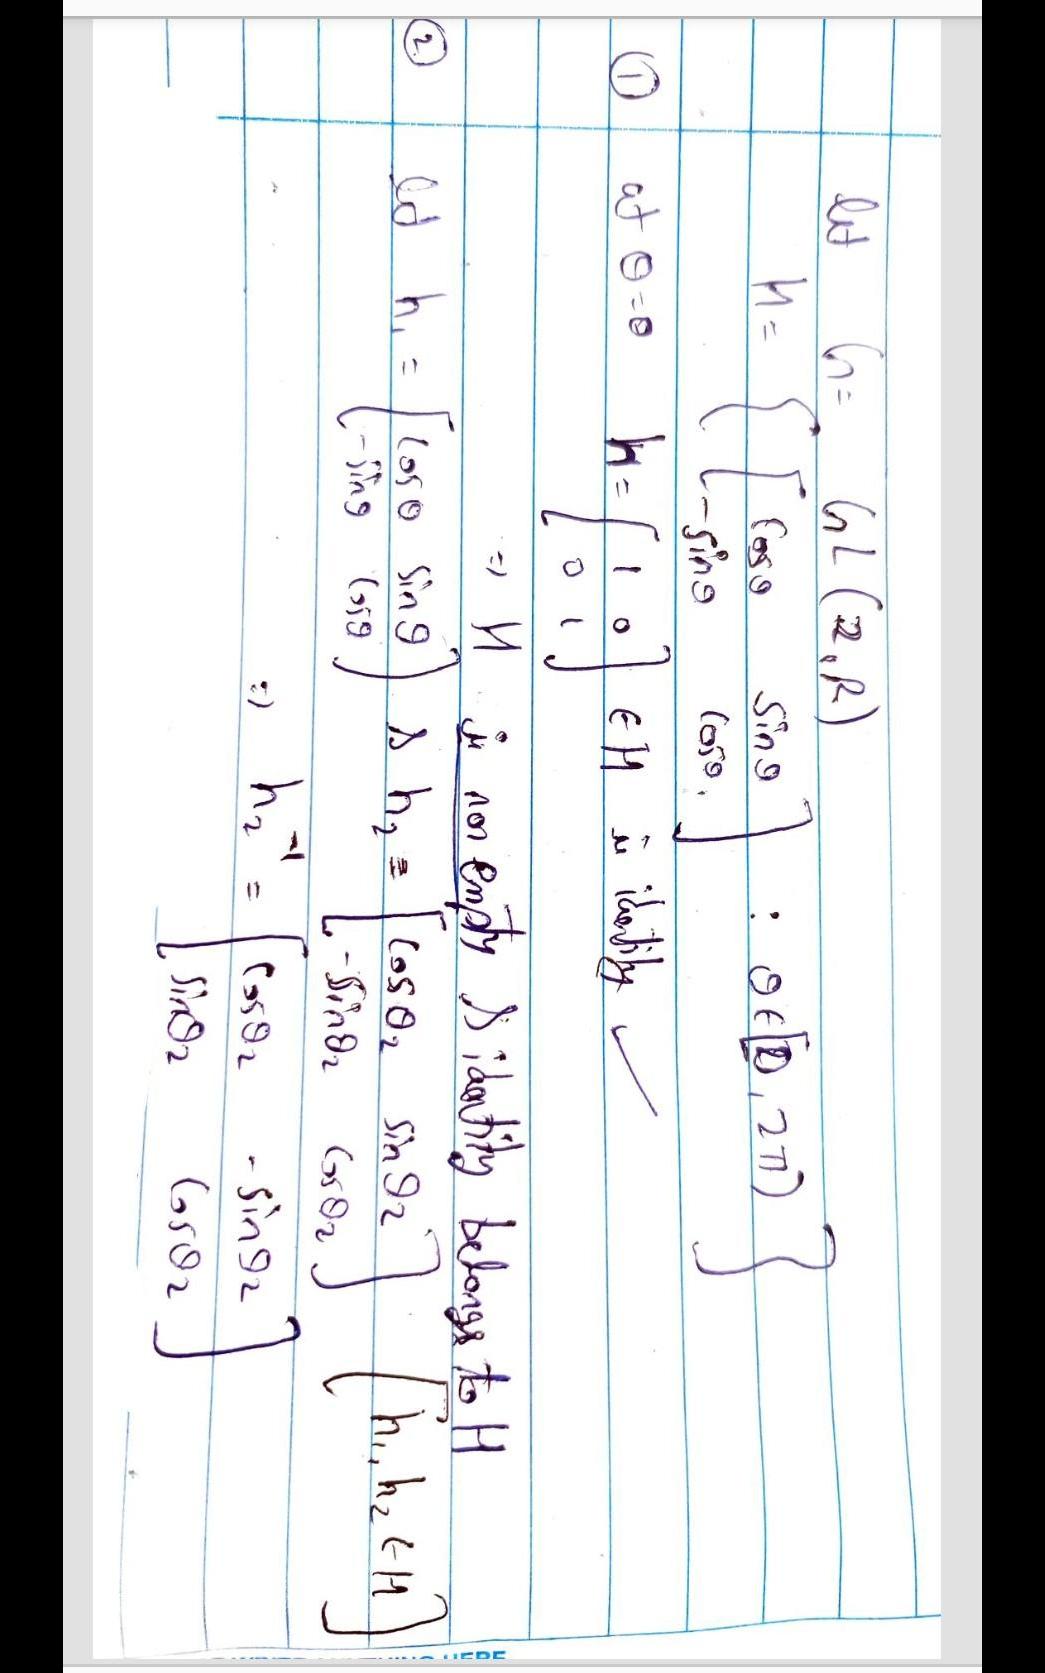 let G = GL(2, R)
H = { [ cosθ sinθ
-sinθ cosθ. ] : θ ∈ [0, 2π) }
① at θ=0 h = [ 1 0
0 1 ] ∈ H is identity ✓
⇒ H is non empty & identity belongs to H
② let h₁ = [ cosθ sinθ
-sinθ cosθ ] & h₂ = [ cosθ₂ sinθ₂
-sinθ₂ cosθ₂ ] [ h₁, h₂ ∈ H ]
⇒ h₂⁻¹ = [ cosθ₂ -sinθ₂
sinθ₂ cosθ₂ ]